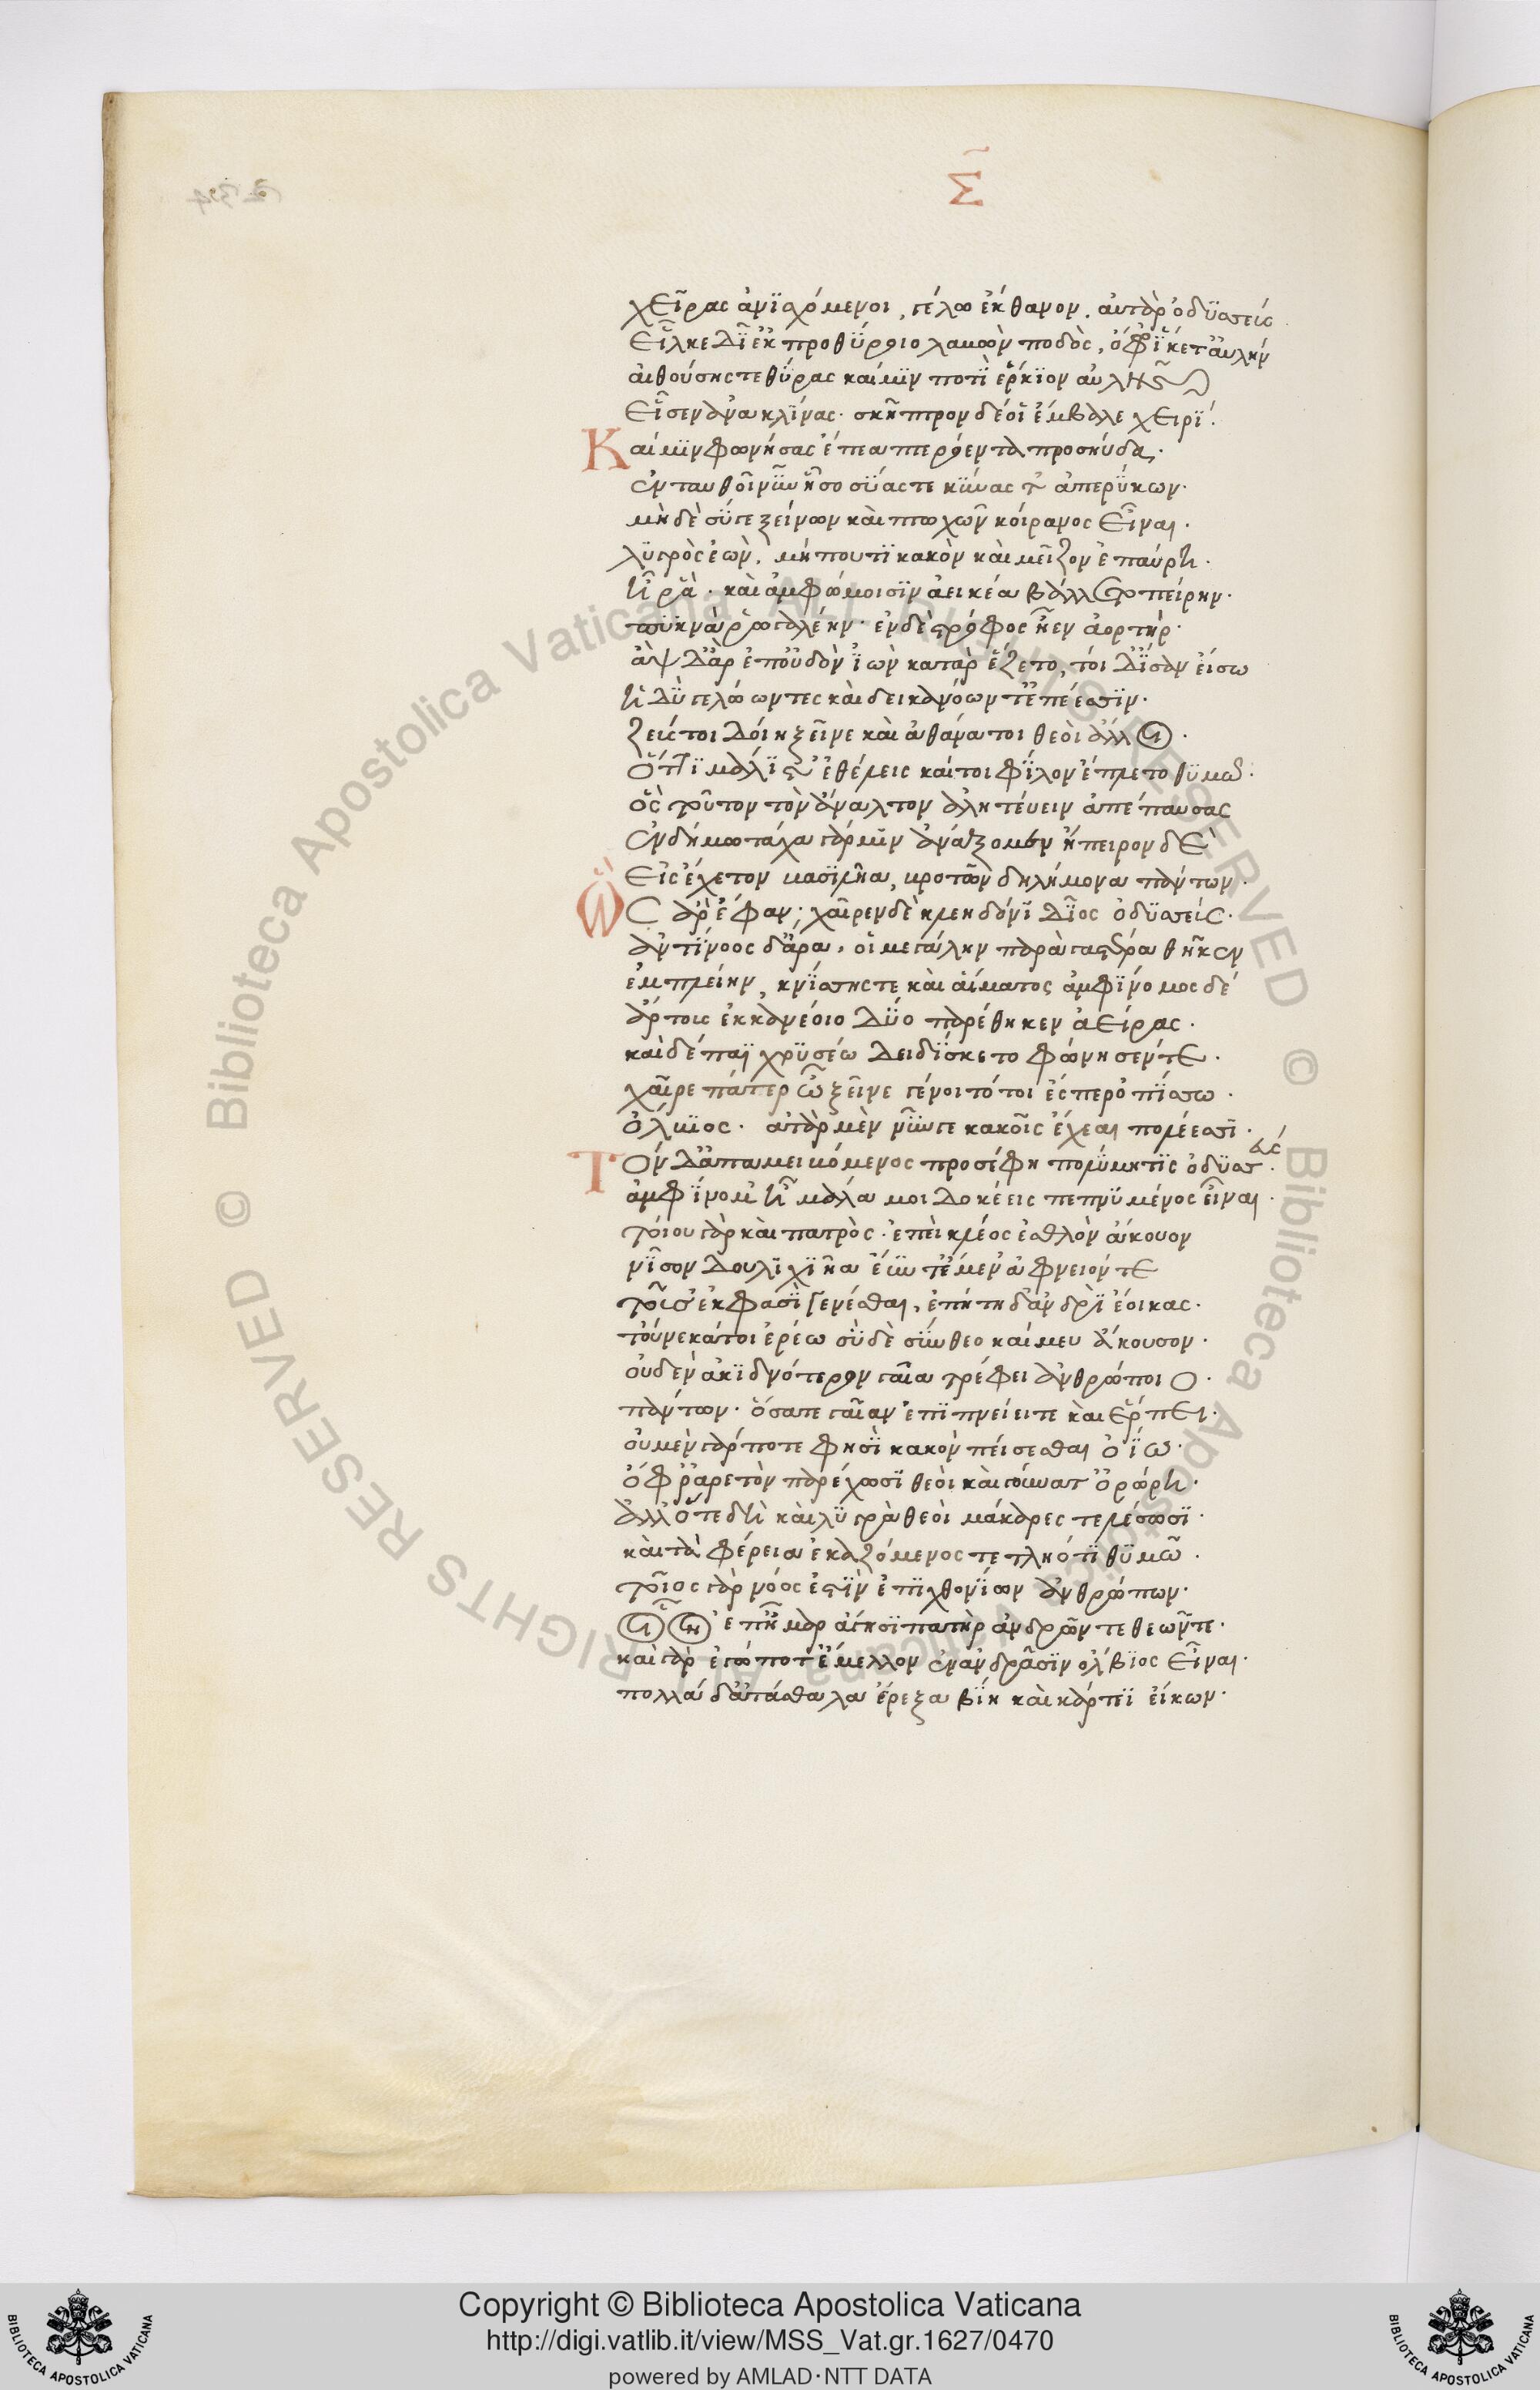 Σ
χεῖρας ἀνϊσχόμενοι, γέλω ἔκθανον. ἀυτὰρ ὀδϋσσεύς
εἷλκε δϊἐκ προθΰροιο λαβὼν ποδὸς, ὄφῤ ἵκετ ἀυλήν
αἰθούσης τε θΰρας καί μϊν ποτῒ ἑρκίον αὐλῆς
εἷσεν ἀνακλΐνας· σκῆπτρον δέ οἱ ἔμβαλε χειρΐ.
Καί μϊν φωνήσας ἔπεα πτερόεντα προσηύδα,
ἐνταυθοῖ νῦν ἧσο σΰας τε κΰνας τ' ἀπερΰκων·
μὴ δὲ σΰγε ξείνων καὶ πτωχῶν κοίρανος εἶναι·
λϋγρὸς ἐὼν, μή πού τϊ κακὸν καὶ μεῖζον ἐπαύρη·
ἦ ῥὰ· καὶ ἀμφ' ὤμοισϊν ἀεικέα βάλλετο πήρην·
πυκνὰ ῥωγαλέην· ἐν δὲ στρόφος ἦεν ἀορτήρ·
ἂψ δ' ἄρ ἐπ' οὐδὸν ἰὼν κατ' ἂρ ἕζετο, τοὶ δ' ἴσαν εἴσω
ἡδῢ γελώωντες καὶ δεικανόωντ' ἐπέεσσϊν·
ζεύς τοι δοίη ξεῖνε καὶ ἀθάνατοι θεοὶ ἄλλοι·
ὅττϊ μάλϊστ' ἐθέλεις καί τοι φΐλον ἔπλετο θϋμῶ·
ὃς τοῦτον τὸν ἄναλτον ἀλητεύειν ἀπέπαυσας
ἐν δήμω τάχα γάρ μϊν ἀνάξομεν ἤπειρον δὲ
εἰς ἔχετον βασϊλῆα, βροτῶν δηλήμονα πάντων·
Ὣς ἄρ' ἔφαν· χαῖρεν δὲ κλεηδόνϊ δῖος ὀδϋσσεύς·
ἀντΐνοος δ' ἄρα, οἱ μεγάλην παρὰ γαστέρα θῆκεν
ἐμπλείην, κνΐσσης τε καὶ αἵματος ἀμφΐνομος δέ
ἄρτους ἐκ κανέοιο δΰο παρέθηκεν ἀείρας·
καὶ δέπαϊ χρϋσέω δειδΐσκετο φώνησέν τε·
χαῖρε πάτερ ὦ ξεῖνε γένοιτό τοι ἐς περ ὀπΐσσω·
ὄλβϊος· ἀτὰρ μὲν νῦν γε κακοῖς ἔχεαι πολέεσσϊ·
Τὸν δ' ἀπαμειβόμενος προσέφη πολΰμητϊς ὀδϋσσεύς·
ἀμφΐνομ' ἦ μάλα μοι δοκέεις πεπνϋμένος εἶναι·
τοίου γὰρ καὶ πατρὸς· ἐπεὶ κλέος ἐσθλὸν ἄκουον
νῖσον δουλϊχϊῆα ἐΰν τ' ἔμεν ἀφνειόν τε
τοῦ σ' ἔκ φασϊ γενέσθαι, ἐπητῆ δ' ἀνδρῒ ἔοικας·
τοὔνεκά τοι ἐρέω σῢ δὲ σΰνθεο καί μευ ἄκουσον·
οὐδὲν ἀκϊδνότερον γαῖα τρέφει ἀνθρώποιο·
πάντων· ὅσα τε γαῖαν ἔπϊ πνείει τε καὶ ἕρπει·
οὐ μὲν γάρ ποτε φησῒ κακὸν πείσεσθαι ὀΐω·
ὄφρ' ἀρετὸν παρέχωσϊ θεοὶ καὶ γούνατ' ὀρώρη·
ἀλλ' ὅτε δὴ καὶ λϋγρὰ θεοὶ μάκαρες τελέσωσϊ·
καὶ τὰ φέρει ἀεκαζόμενος τετληότϊ θϋμῶ·
τοῖος γὰρ νόος ἐστῒν ἐπϊχθονΐων ἀνθρώπων·
οἷον ἐπ' ἦμαρ ἄγησϊ πατὴρ ἀνδρῶν τε θεῶν τε·
καὶ γὰρ ἐγώ ποτ' ἔμελλον ἐν ἀνδράσϊν ὄλβϊος εἶναι·
πολλὰ δ' ἀτάσθαλα ἔρεξα βΐη καὶ κάρτεϊ εἴκων·
Copyright © Biblioteca Apostolica Vaticana
http://digi.vatlib.it/view/MSS_Vat.gr.1627/0470
powered by AMLAD·NTT DATA
BIBLIOTECA APOSTOLICA VATICANA
BIBLIOTECA APOSTOLICA VATICANA
© Biblioteca Apostolica Vaticana ALL RIGHTS RESERVED
© Biblioteca Apostolica Vaticana ALL RIGHTS RESERVED